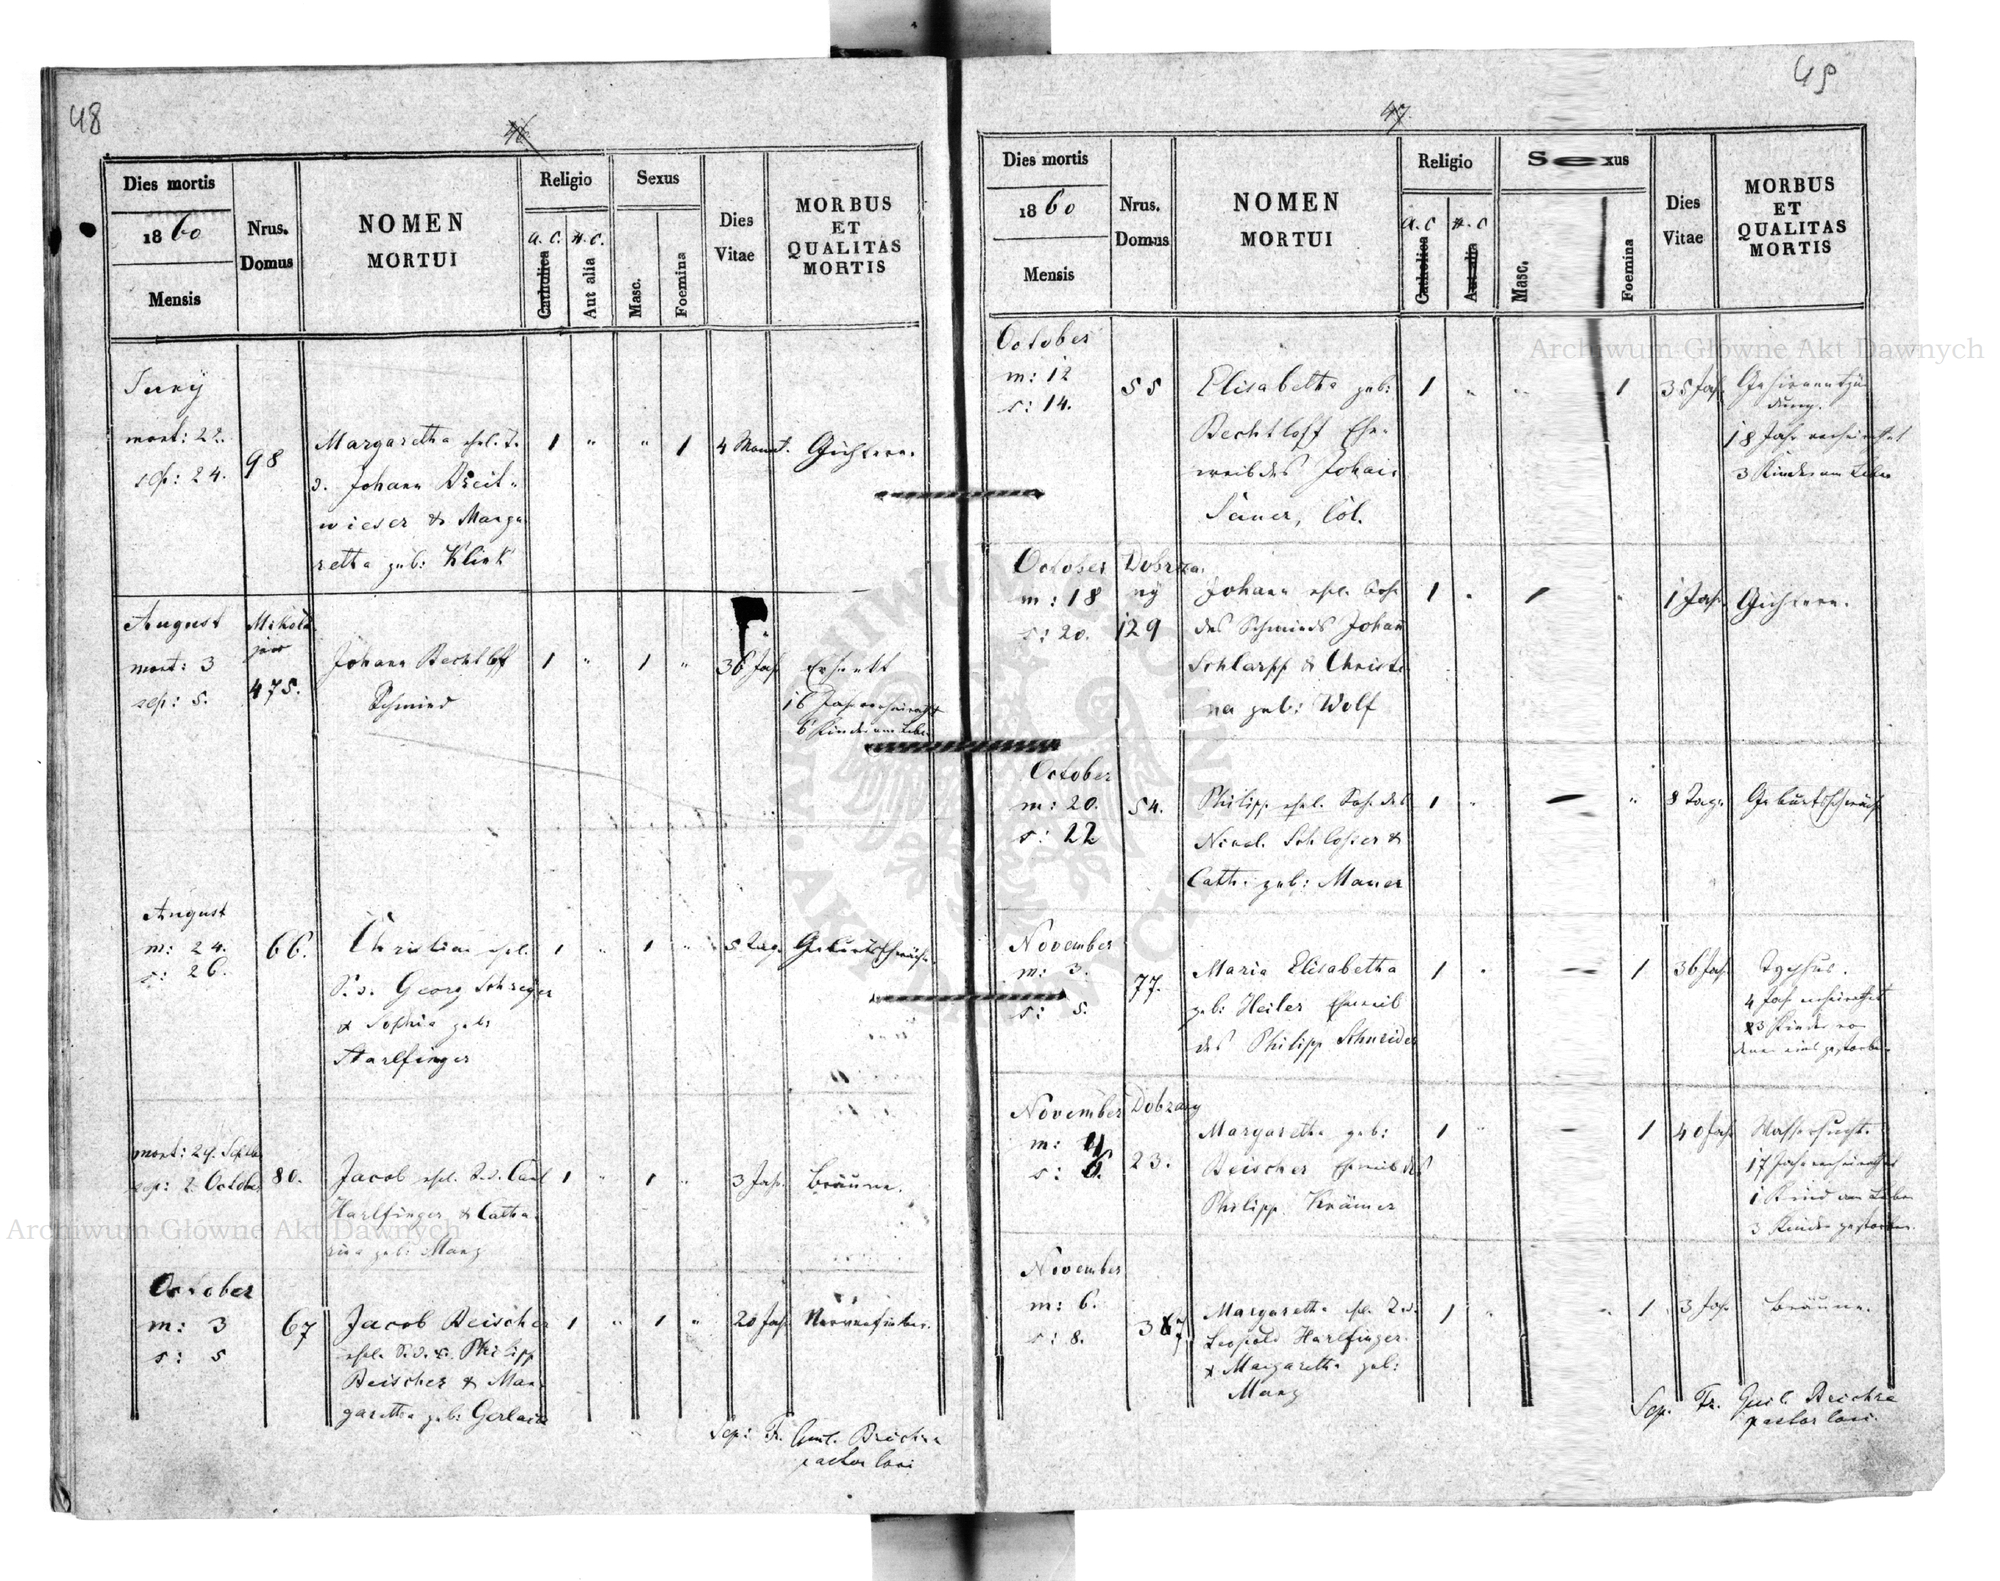 48
46.
Dies mortis
1860
Mensis
Nrus.
Domus
NOMEN
MORTUI
Religio
a. C.
H. C.
Catholica
Aut alia
Sexus
Masc.
Foemina
Dies
Vitae
MORBUS
ET
QUALITAS
MORTIS
Juny
mort: 22.
sep: 24.
98
Margaretha ehel. T.
d. Johann Breit-
wieser & Marga
retha geb: Klink
1 " " 1
4 Monat.
Gichtern.
August
mort: 3
sep: 5.
475.
Johann Bechtloff
Schmied
1 " 1 "
36 Jahr
16 Jahr verheirathet
6 Kinder am Leben
August
m: 24.
s: 26.
66.
Christian ehel.
S. d. Georg Schreyer
& Sophia geb:
Harlfinger
1 " 1 "
5 Tage
Geburtsschwäche
mort: 29. Septbr
sep: 2. October
80.
Jacob ehel. S. d. Carl
Harlfinger & Catha-
rina geb: Manz
1 " 1 "
3 Jahr
Bräune.
October
m: 3
s: 5
67
Jacob Beischer
ehel. S. d. Philipp
Beischer & Mar-
garetha geb: Gerlach
1 " 1 "
20 Jahr
Nervenfieber.
pastor loci
49
47.
Dies mortis
1860
Mensis
Nrus.
Domus
NOMEN
MORTUI
Religio
a. C
H. C
Catholica
Aut alia
Sexus
Masc.
Foemina
Dies
Vitae
MORBUS
ET
QUALITAS
MORTIS
October
m: 12
s: 14.
55
Elisabetha geb:
Bechtloff Ehe-
weib des Johann
1 " " 1
35 Jahr
Gehirnentzün
dung.
18 Jahr verheirathet
3 Kinder am Leben
October
m: 18
s: 20.
Dobrza-
ny
129
Johann ehel. Sohn
des Schmieds Johann
Schlarpp & Christi
na geb: Wolf
1 " 1 "
1 Jahr
Gichtern.
October
m: 20.
s: 22
54.
Philipp ehel. Sohn des
Nicol. Schlosser &
Cath. geb: Mauer
1 " 1 "
8 Tage
Geburtsschwäche
November
m: 3.
s: 5.
77.
Maria Elisabetha
geb: Heiler Eheweib
des Philipp Schneider
1 " - 1
36 Jahr
Typhus.
4 Jahr verheirathet
3 Kinder von
denen eines gestorben
November
m: 4
s: 6.
Dobrzany
23.
Margaretha geb:
Beischer Eheweib des
Philipp Krämer
1 " - 1
40 Jahr
Wassersucht.
17 Jahr verheirathet
1 Kind am Leben
3 Kinder gestorben.
November
m: 6.
s: 8.
Margaretha ehel. T. d.
Leopold Harlfinger
& Margaretha geb:
Manz
1 " " 1
3 Jahr
Bräune.
pastor loci.
Archiwum Główne Akt Dawnych
Archiwum Główne Akt Dawnych
ARCHIWUM GŁÓWNE AKT DAWNYCH